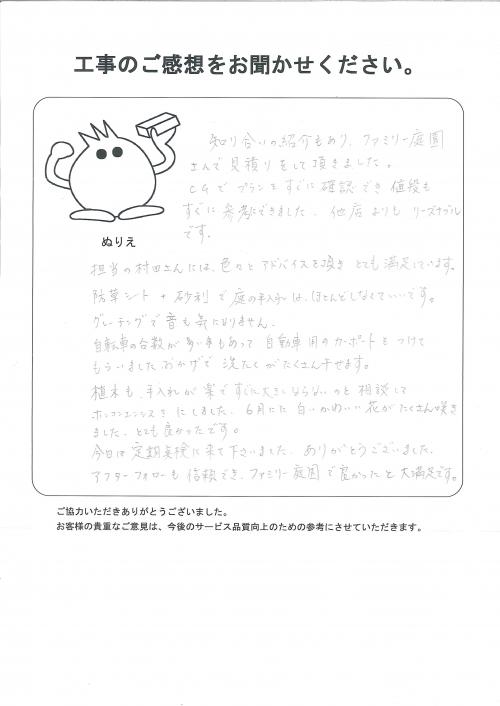 工事のご感想をお聞かせください。
知り合いの紹介もあり、ファミリー庭園
さんで見積りをして頂きました。
CGでプランをすぐに確認でき値段も
すぐに参考にできました。他店よりもリーズナブル
です。
ぬりえ
担当の村田さんには、色々とアドバイスを頂きとても満足しています。
防草シート+砂利で庭の手入れは、ほとんどしなくていいです。
グレーチングで音も気になりません。
自転車の台数が多い事もあって自動車用のカーポートをつけて
もらいました。おかげで洗たくがたくさん干せます。
植木も、手入れが楽ですぐに大きくならないのを相談して
ホンコンエンシスをにしました。6月にに白いかわいい花がたくさん咲き
ました。とても良かったです。
今日は定期点検に来て下さいました。ありがとうございました。
アフターフォローも信頼でき、ファミリー庭園で良かったと大満足です。
ご協力いただきありがとうございました。
お客様の貴重なご意見は、今後のサービス品質向上のための参考にさせていただきます。